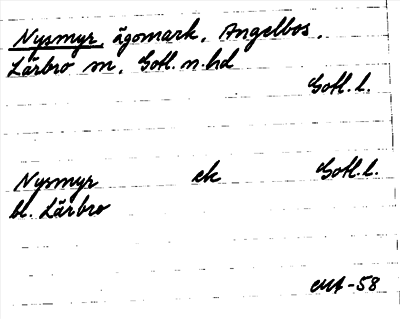 Nysmyr ägomark, Angelbos,
Lärbro sn, Gotl. n. hd
Gotl. l.
Nysmyr ek Gotl. l.
bl. Lärbro
-58